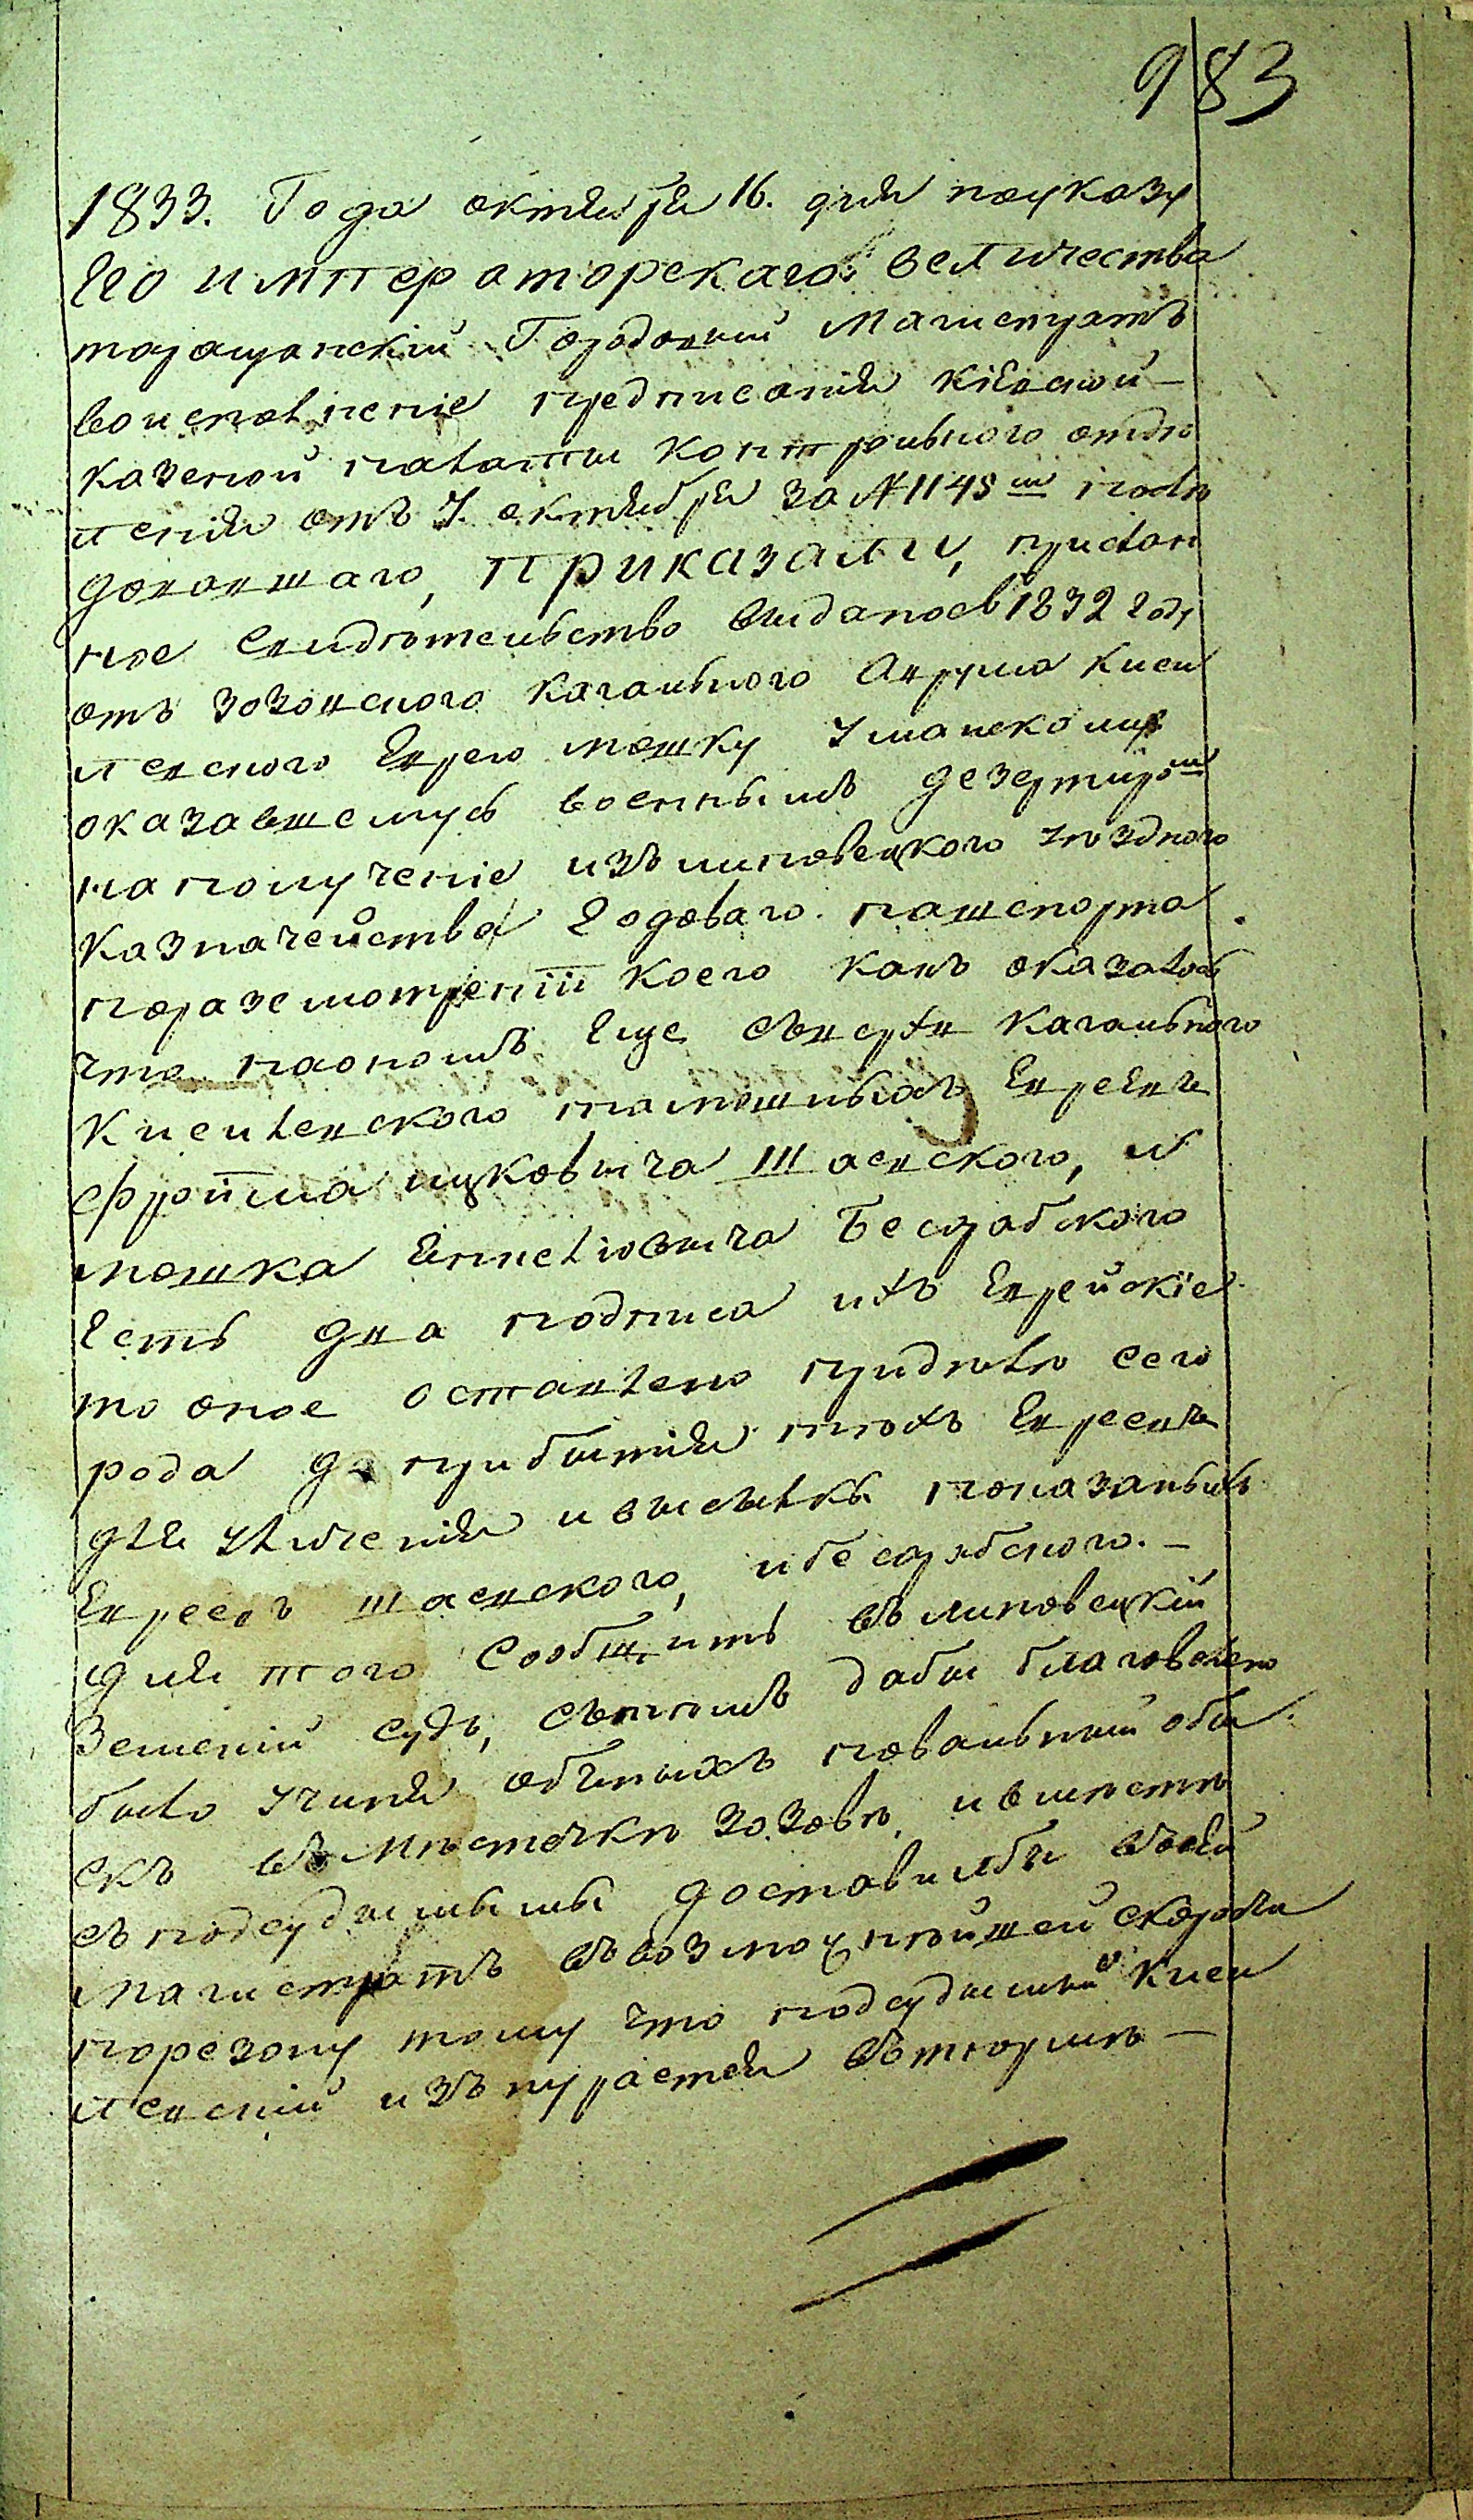 983
1833. Года октября 16. дня поуказу
Его императорскаго величества
таращанский Городовый Магистратъ
воисполнение предписания Кіевской
казеной палаты Контрольного отдѣ
ления отъ 7. октября за №1145м послѣ
довавшаго, Приказали, прислан
ное свидѣтельство виданое в 1832 году
отъ зозовского Кагального Аврума Киси
левского Еврею мошку Уманскому
оказавшемусь военнымъ дезертиромъ
на получение изъ липовецкого уѣздного
Казначейства Годоваго пашпорта
поразсмотрении коего какъ оказалось
что на ономъ Еще сверхъ Кагального
Кисилевского тамошныхъ Евреевъ
ефройма ицковича Шаевского, и
мошка Емелювича Бесарабского
Есть два подписа ихъ Еврейские
то оное оставлено придѣлѣ сего
рода до прибытия тѣхъ Евреевъ
для уличения и высылкы показаныхъ
Евреевъ шаевского, и бесарабского.–
для того Сообщить въ липовецкій
Земский судъ, съ тѣмъ дабы благоволено
было учиня обыныхъ повальный обы
скъ въ мѣстечкѣ Зозовѣ, и вмѣстѣ
съ подсудымымы доставилбы въсей
магистратъ въ возможнѣйшей скорости
порезону тому что подсудымый Киси
левский изъ нурается въ тюрмѣ –